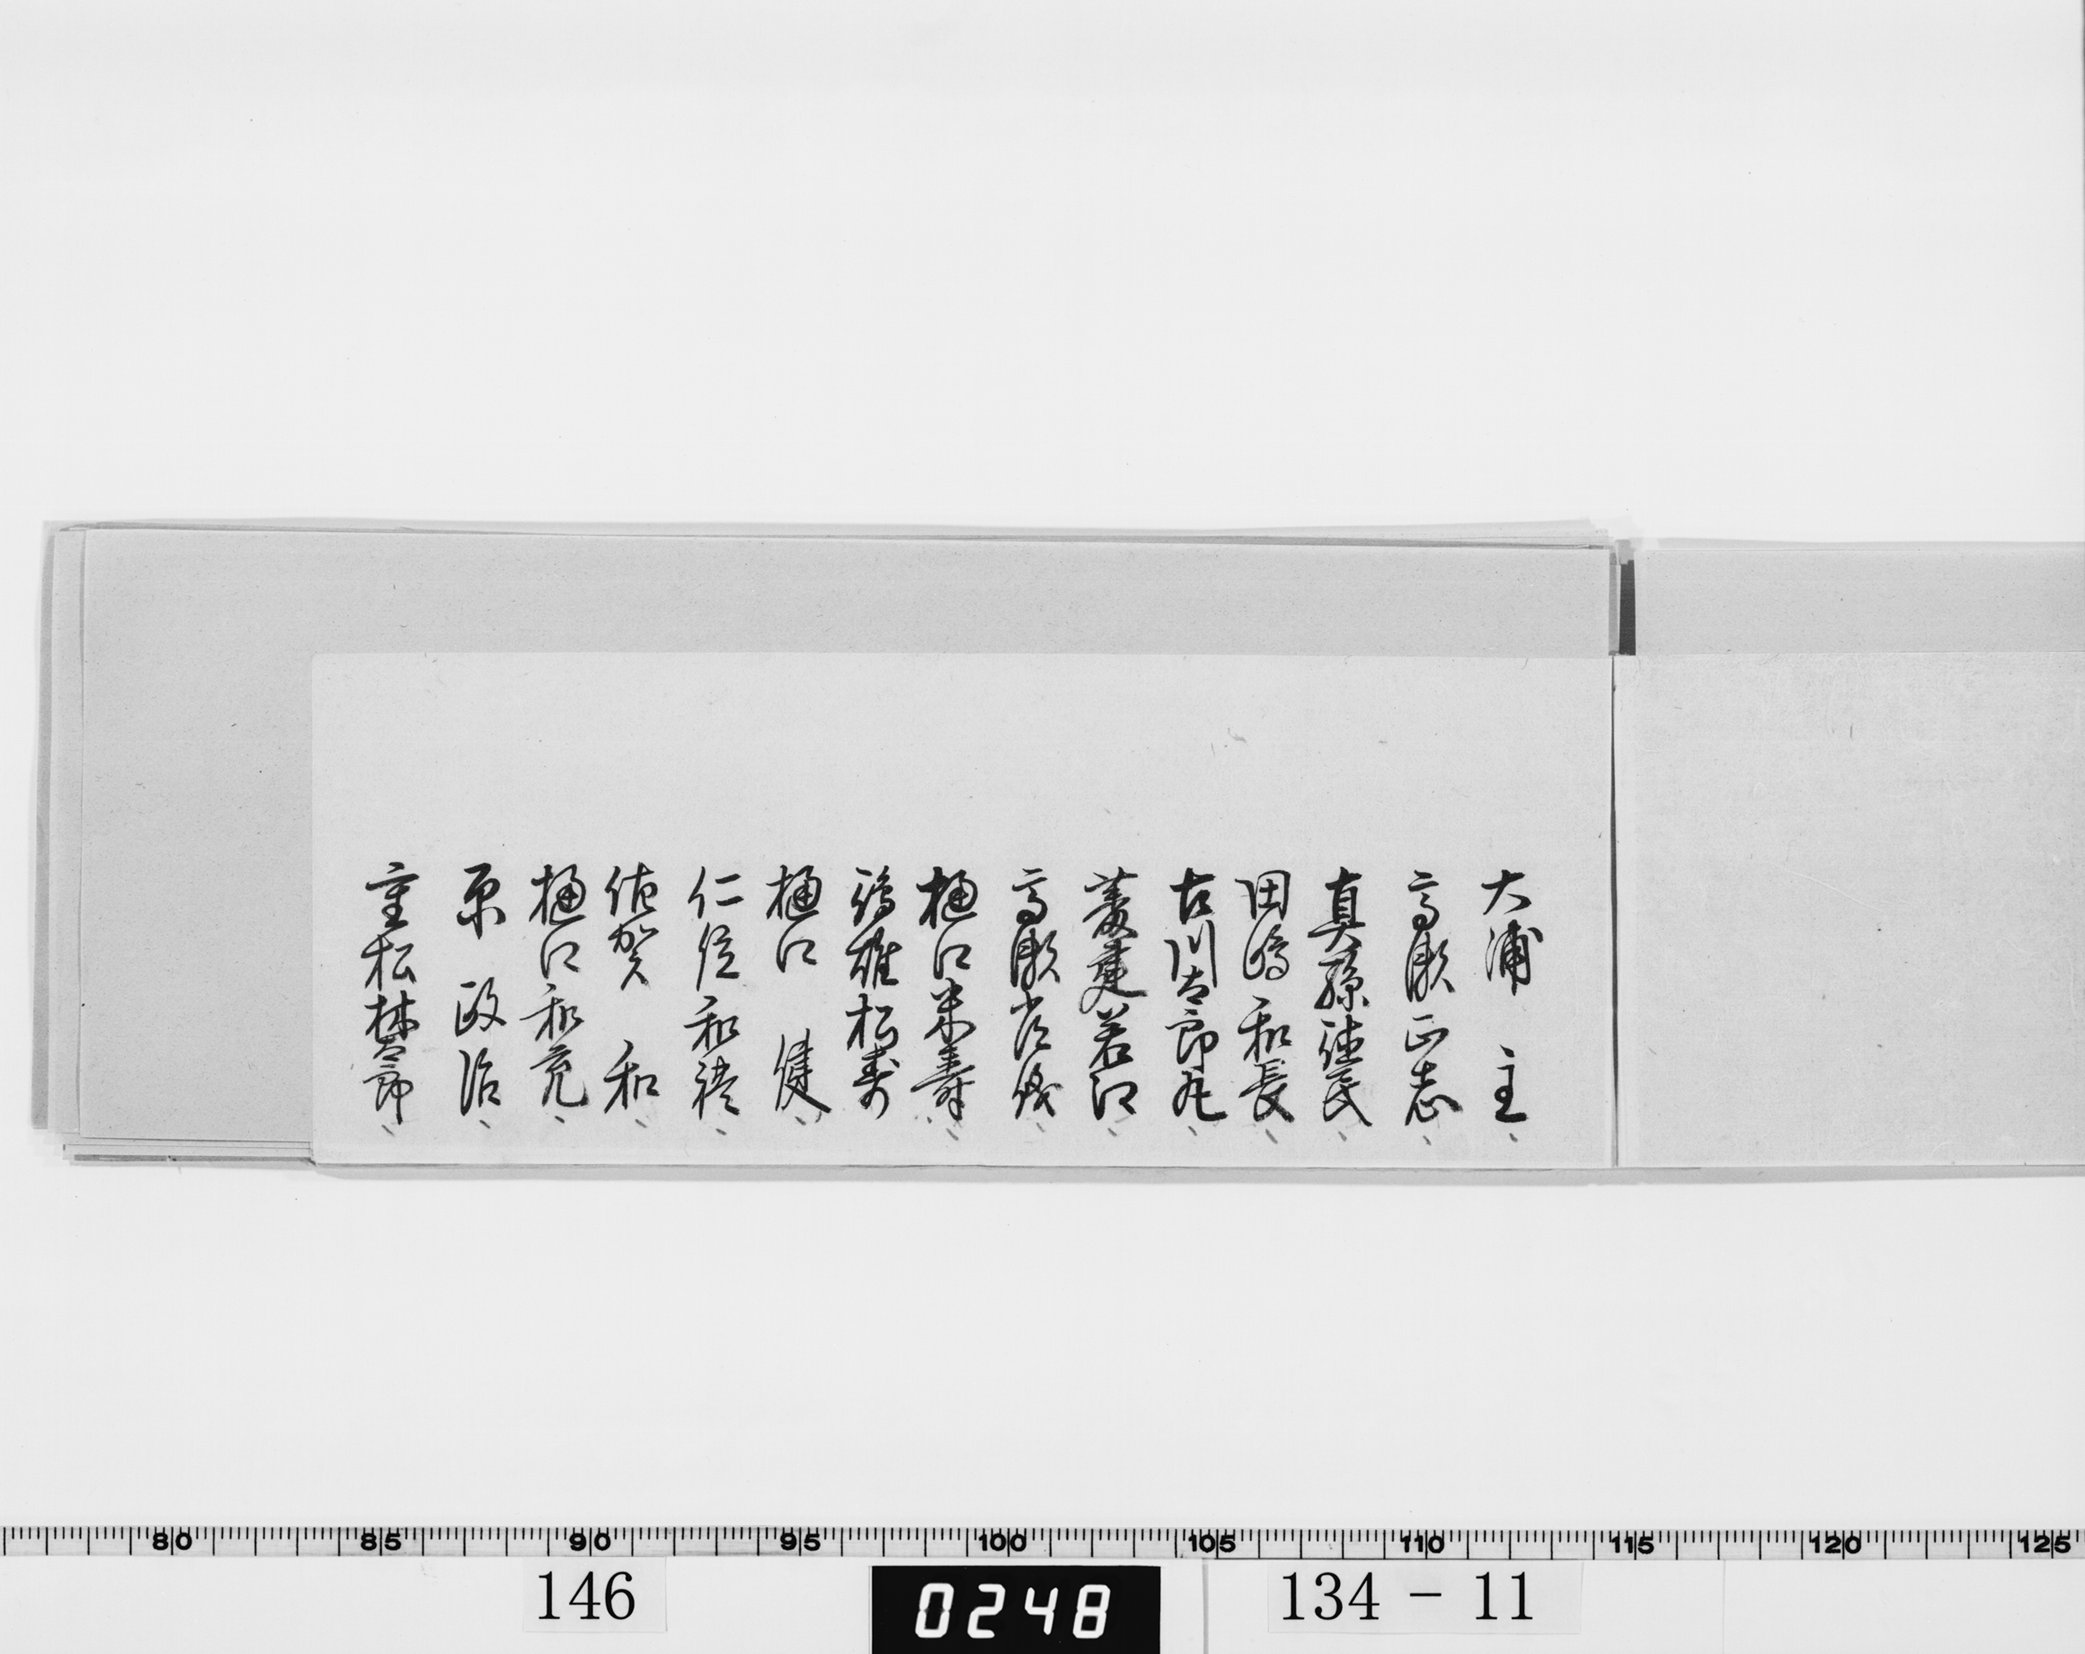 大浦 主
高瀬正志
真孫健民
田嶋和長
古川太郎丸
菱建若江
高瀬
樋口米寿
雄松寿
樋口 健
仁位和禮
佐賀 和
樋口和亮
原 政治
重松林太郎
80 85 90 95 100 105 110 115 120 125
146
0248
134-11